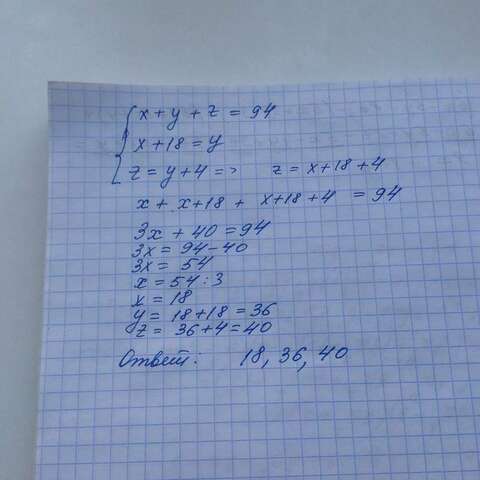 x + y + z = 94
x + 18 = y
z = y + 4 => z = x + 18 + 4
x + x + 18 + x + 18 + 4 = 94
3x + 40 = 94
3x = 94 - 40
3x = 54
x = 54 : 3
x = 18
y = 18 + 18 = 36
z = 36 + 4 = 40
Ответ: 18, 36, 40